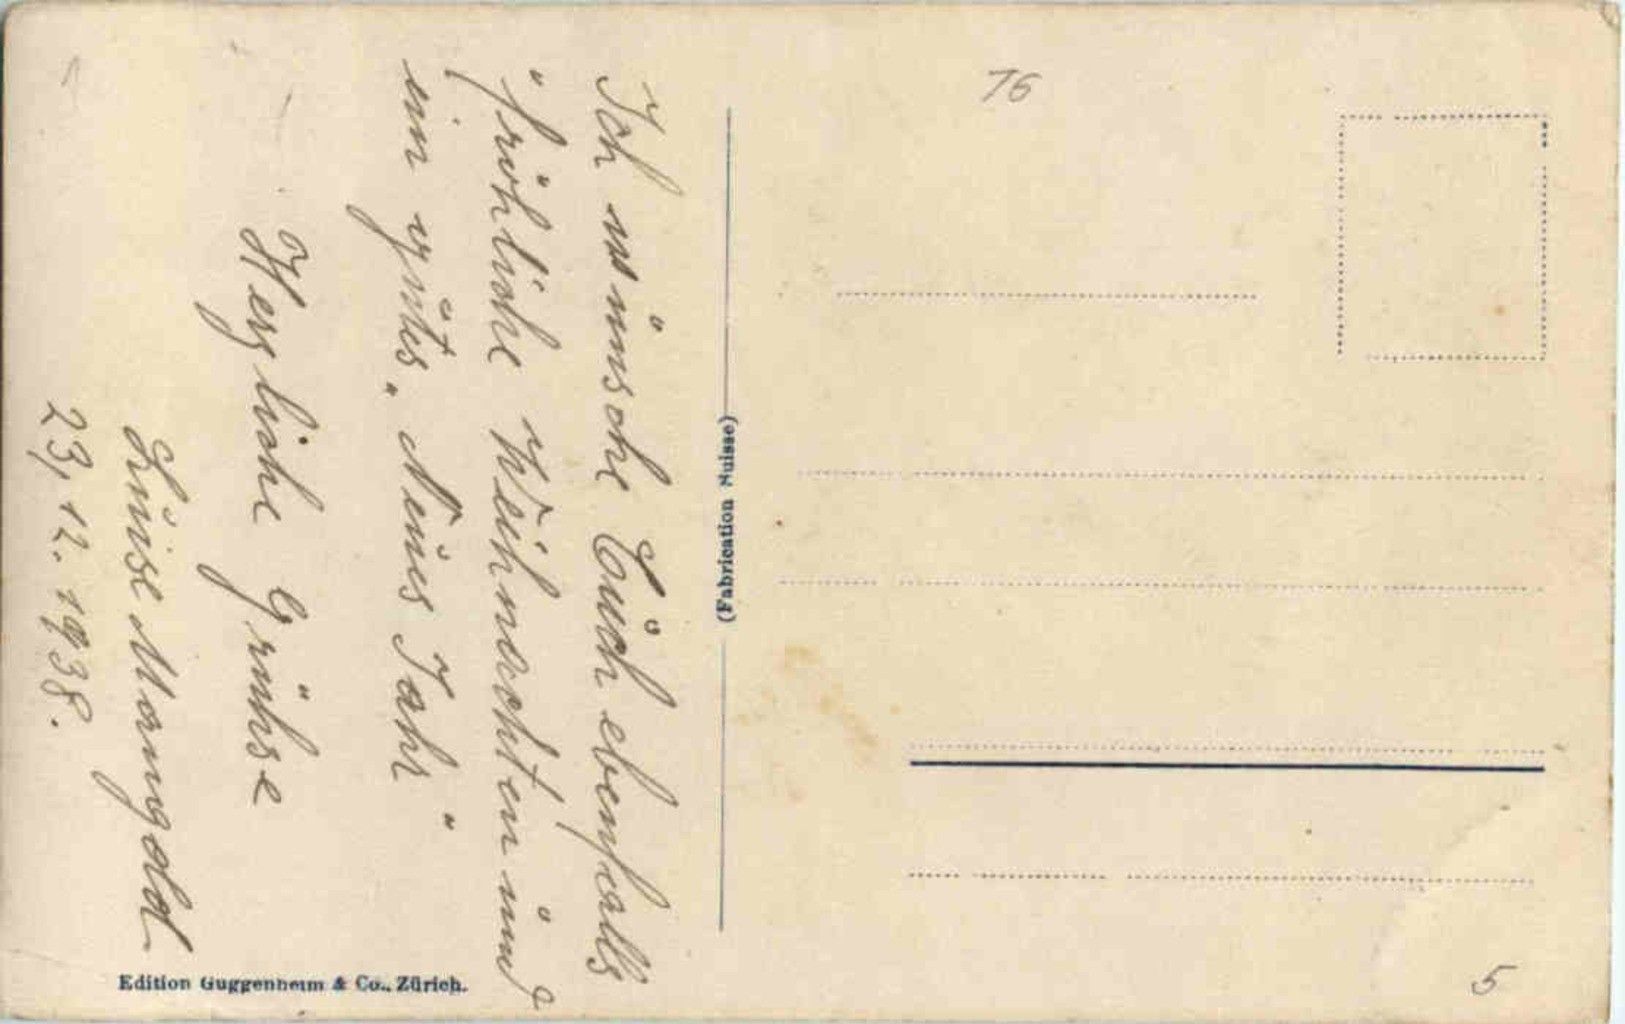 Ich wünsche Euch ebenfalls
"fröhliche Weihnachten und
ein gutes "Neues Jahr"
Herzliche Grühse
Luise Morngold
23, 12. 1938.
(Fabrication Suisse)
Edition Guggenheim & Co., Zürich.
76
5